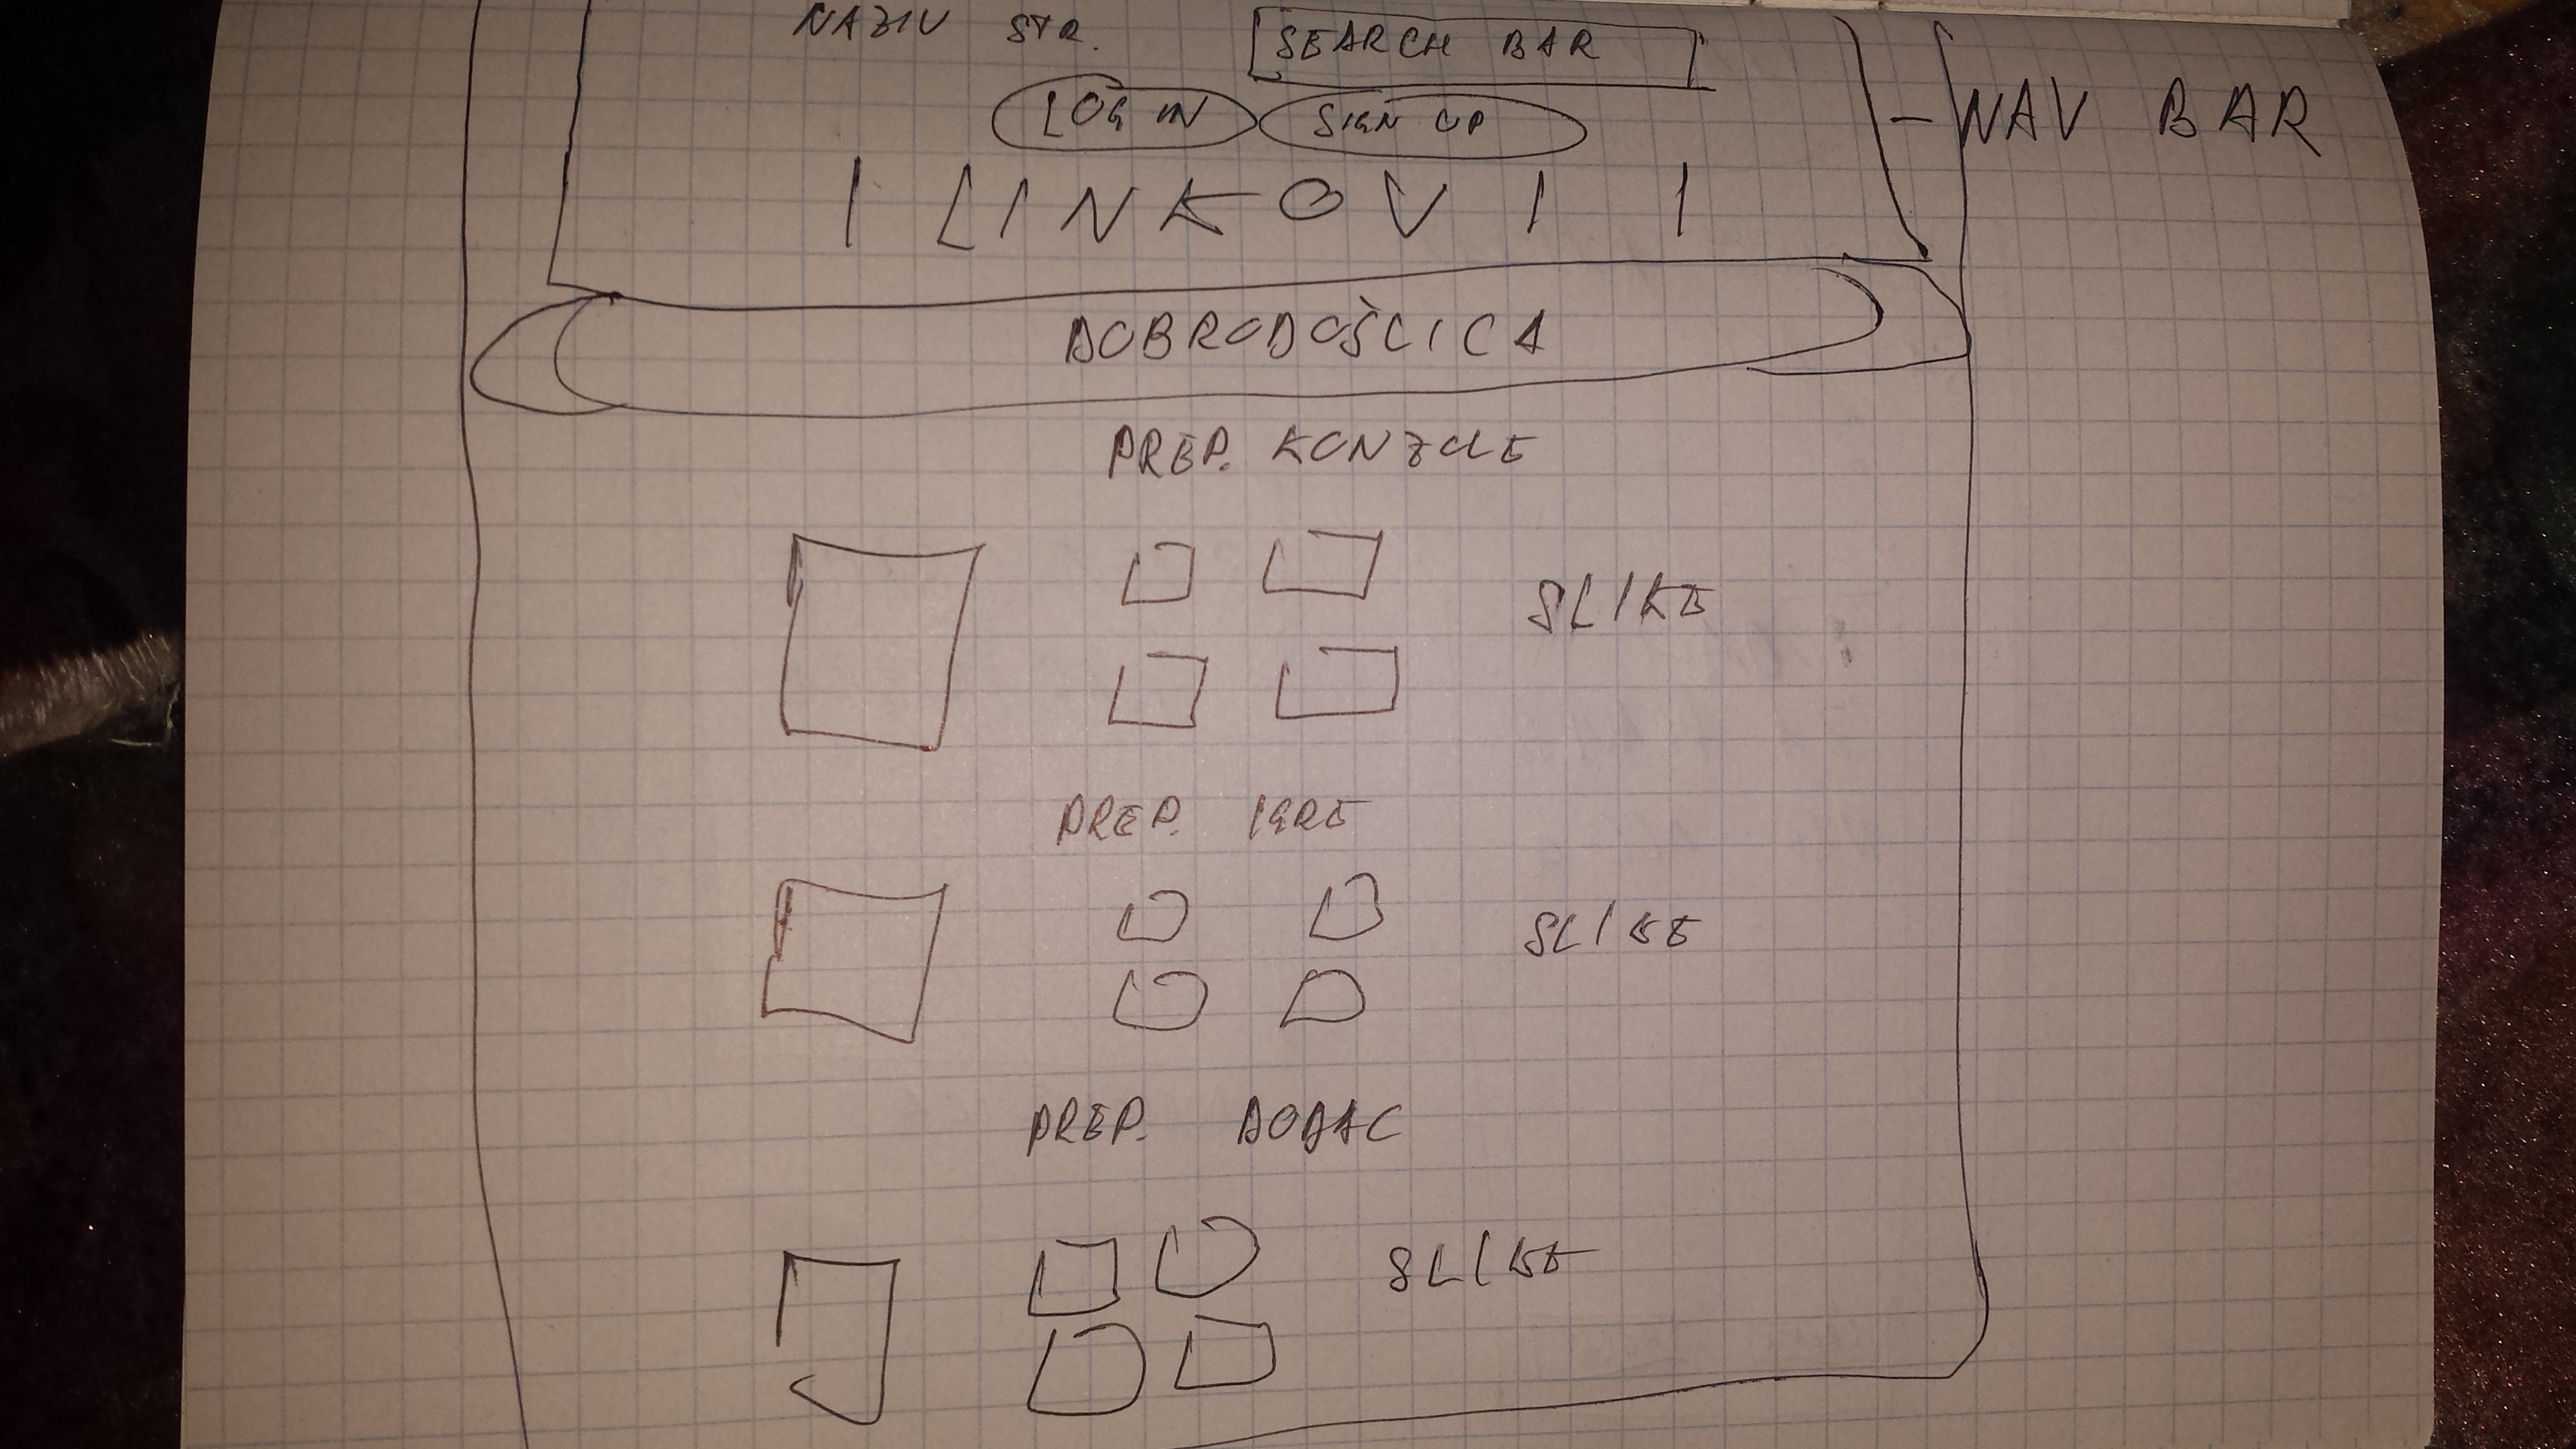 NAZIV STR.
SEARCH BAR
LOG IN SIGN UP
- NAV BAR
| LINKOVI |
DOBRODOŠLICA
PREP. KONZOLE
SLIKE
PREP. IGRE
SLIKE
PREP. DODAC
SLIKE